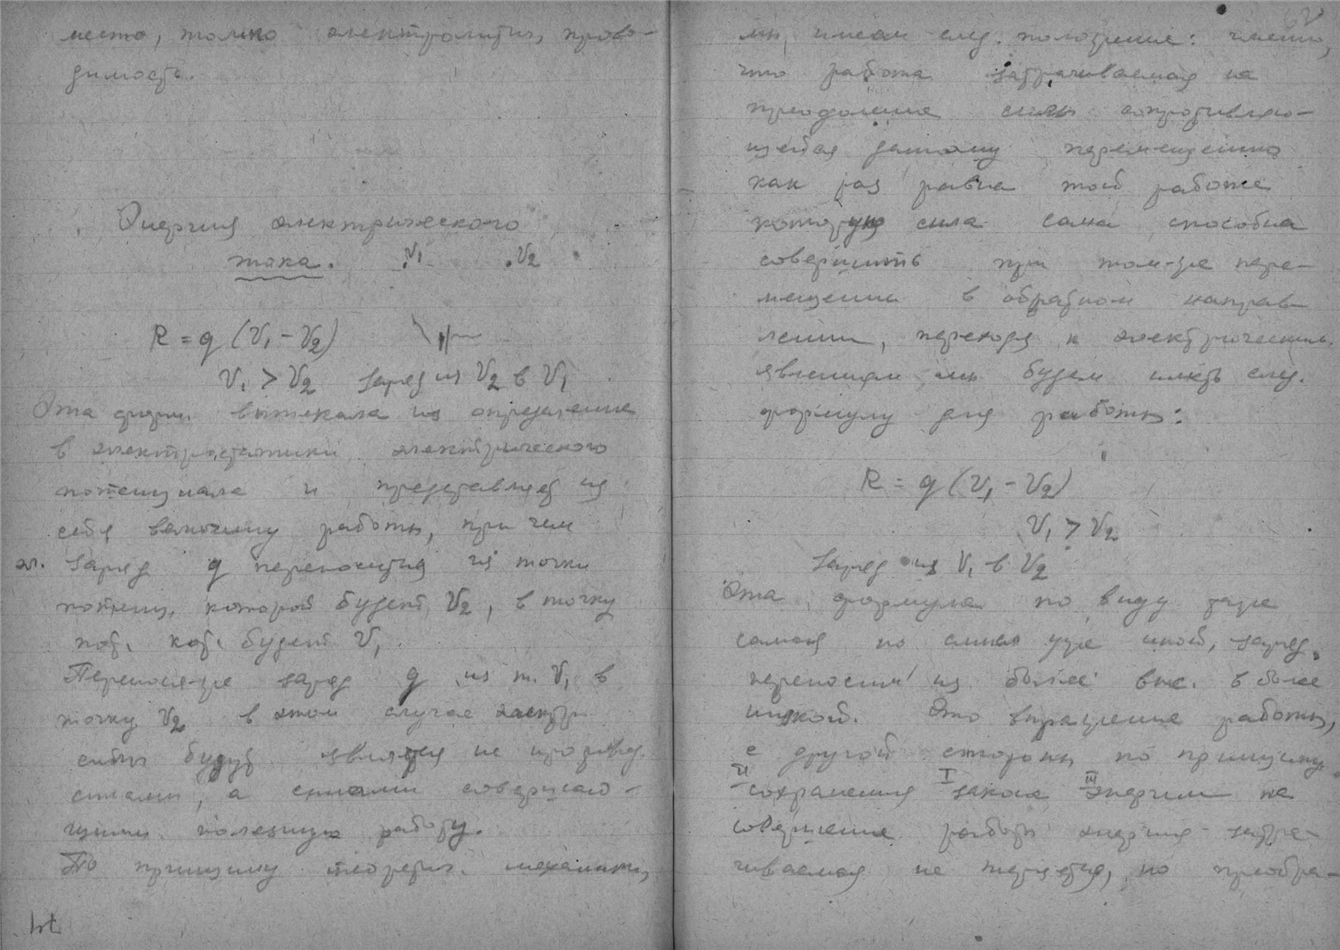 место, только электролитич, прово-
димость.
Энергия электрического
тока. V1 V2
R = q (V1 - V2)
V1 > V2 заряд из V2 в V1
Эта форм. вытекала из определения
в электростатики электрического
потенциала и представляет из
себя величину работы, при чем
эл. заряд q переносится из точки
потенц. которой будет V2, в точку
пот. кот. будет V1.
Перенося-же заряд q из т. V1 в
точку V2 в этом случае электр.
силы будут являться не
силами, а силами совершаю-
щими полезную работу.
По принципу теорет. механики,
мы имеем след. положение: именно,
что работа затрачиваемая на
преодоление силы сопротивляю-
щейся данному перемещению
как раз равна той работе
которую сила сама способна
совершить при том-же пере-
мещении в обратном направ
лении, переходя к электрическим
явлениям мы будем иметь след.
формулу для работы:
R = q (V1 - V2)
V1 > V2
Заряд из V1 в V2
Эта формула по виду таже
самая но смысл уже иной, заряд
переносим из более выс. в более
низкой. Это выражение работы,
с другой стороны по принципу
II сохранения I закона III энергии на
совершение работы энергия затра-
чиваемая не теряется, но преобра-